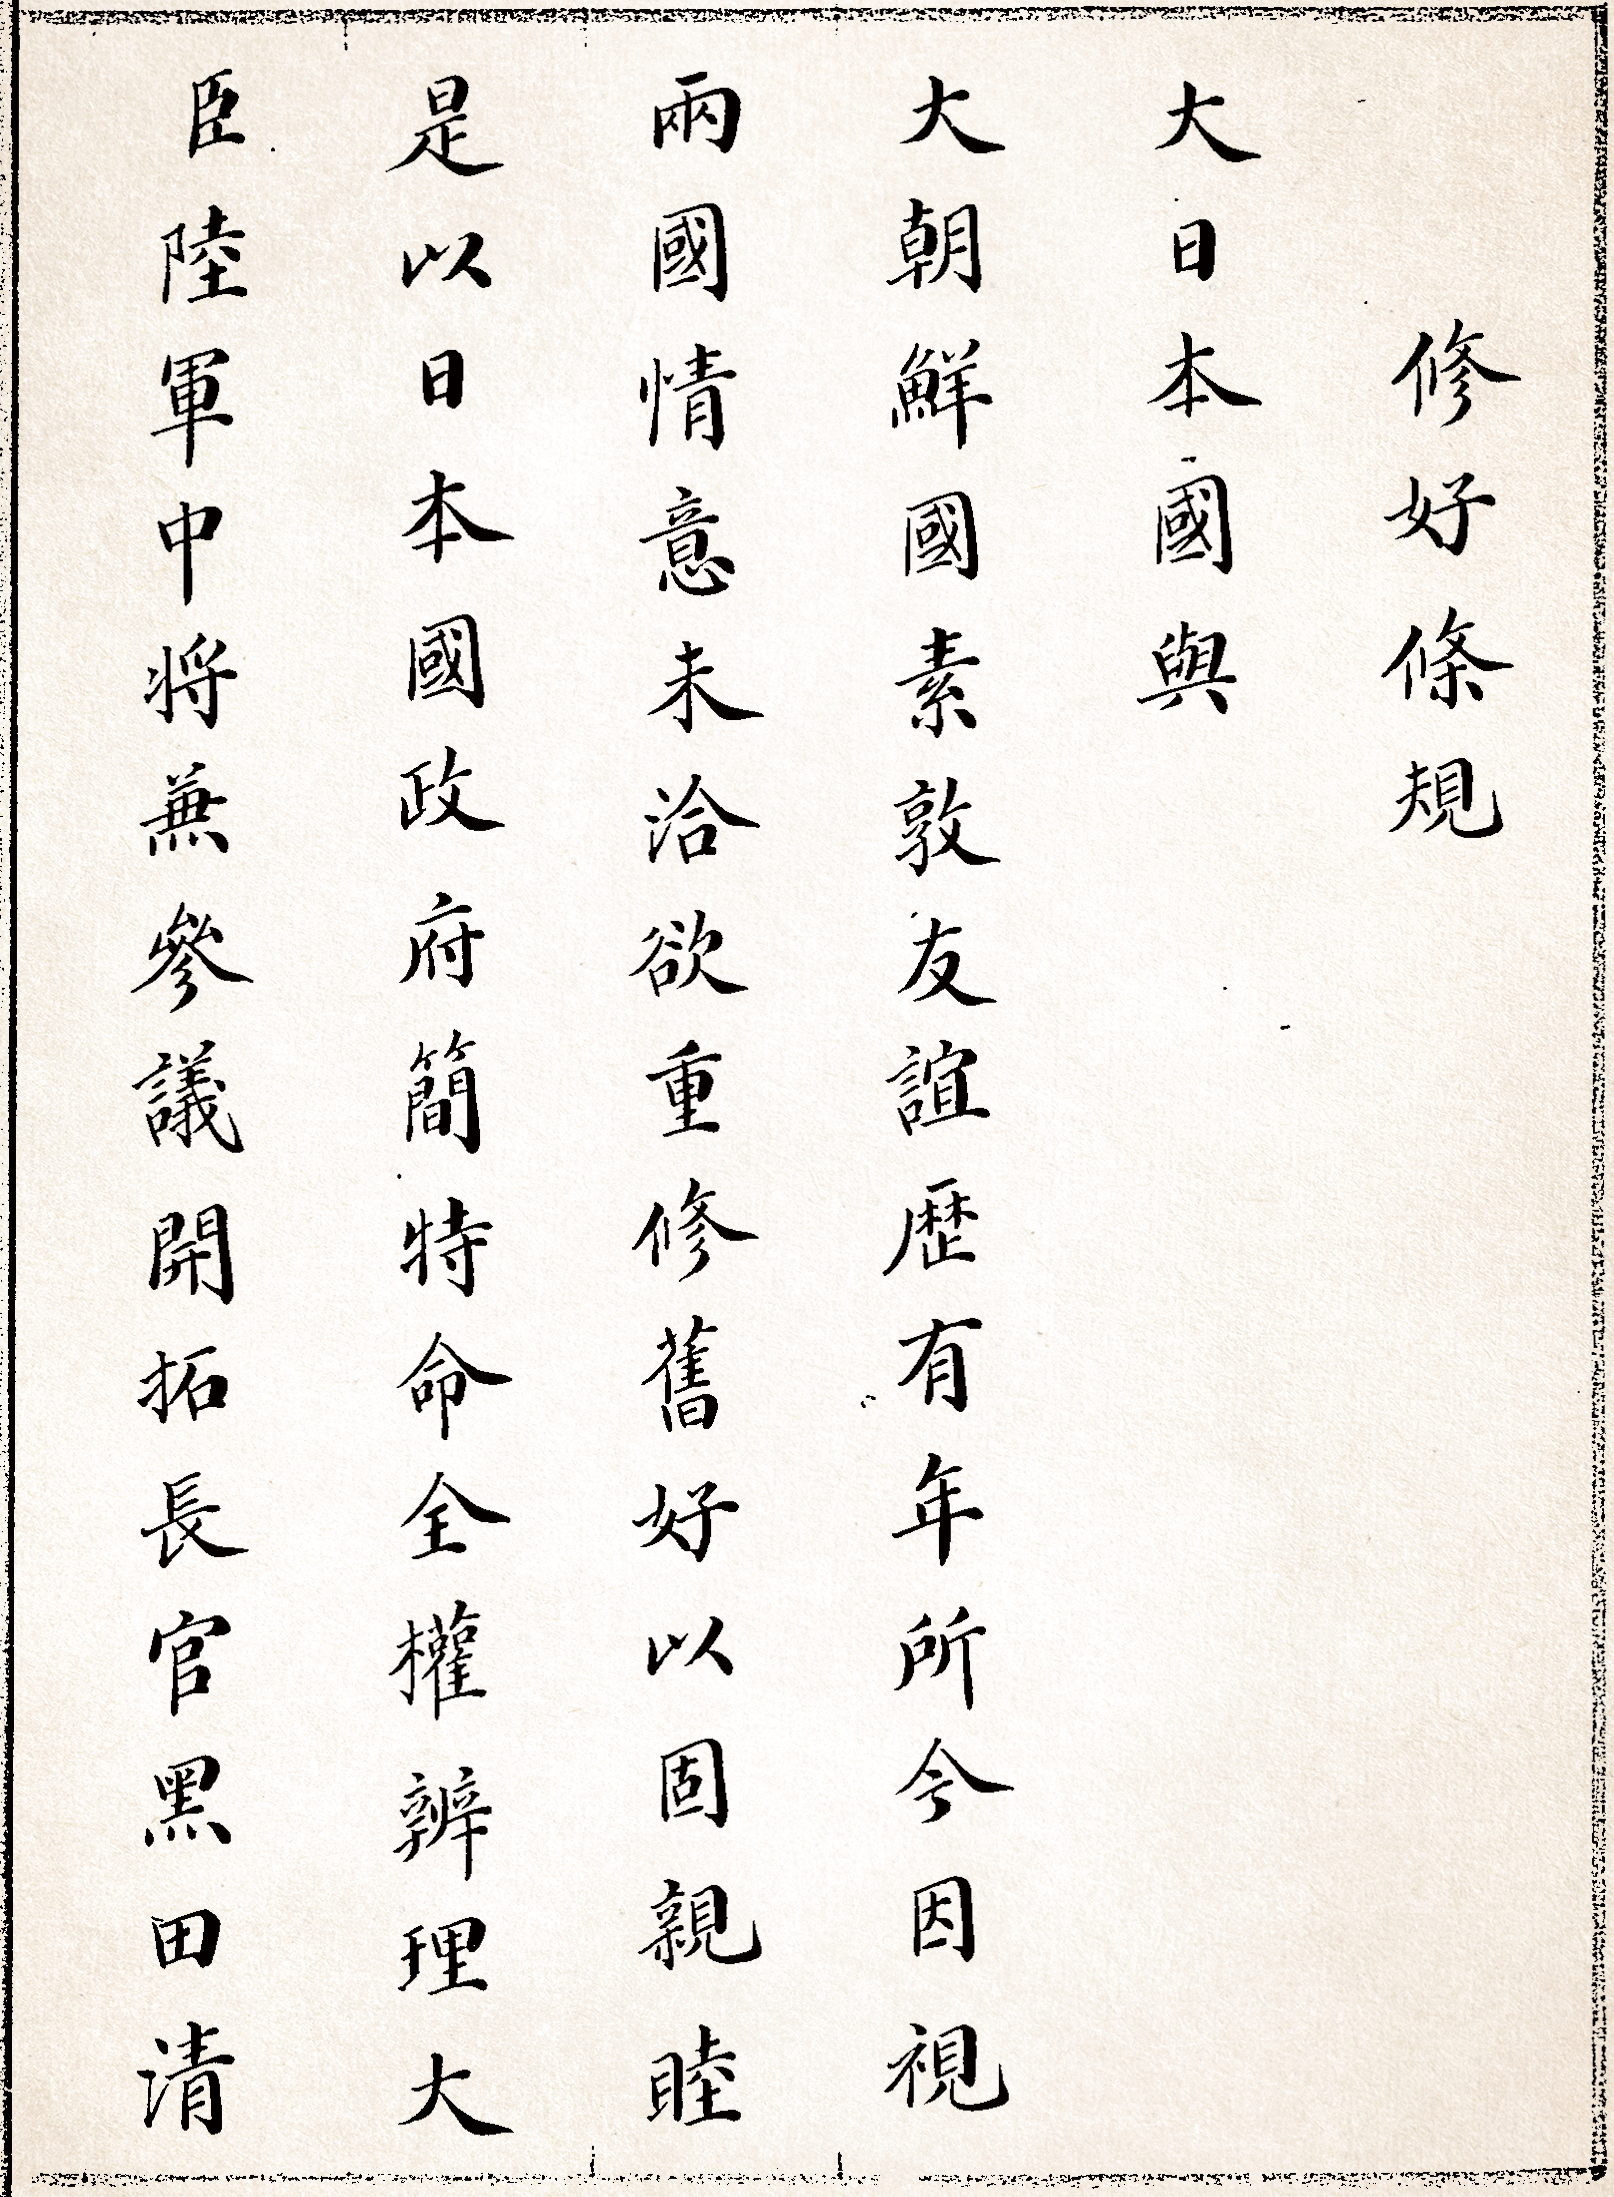 修好條規
大日本國與
大朝鮮國素敦友誼歴有年所今因視
兩國情意未洽欲重修舊好以固親睦
是以日本國政府簡特命全權辨理大
臣陸軍中将兼參議開拓長官黑田清